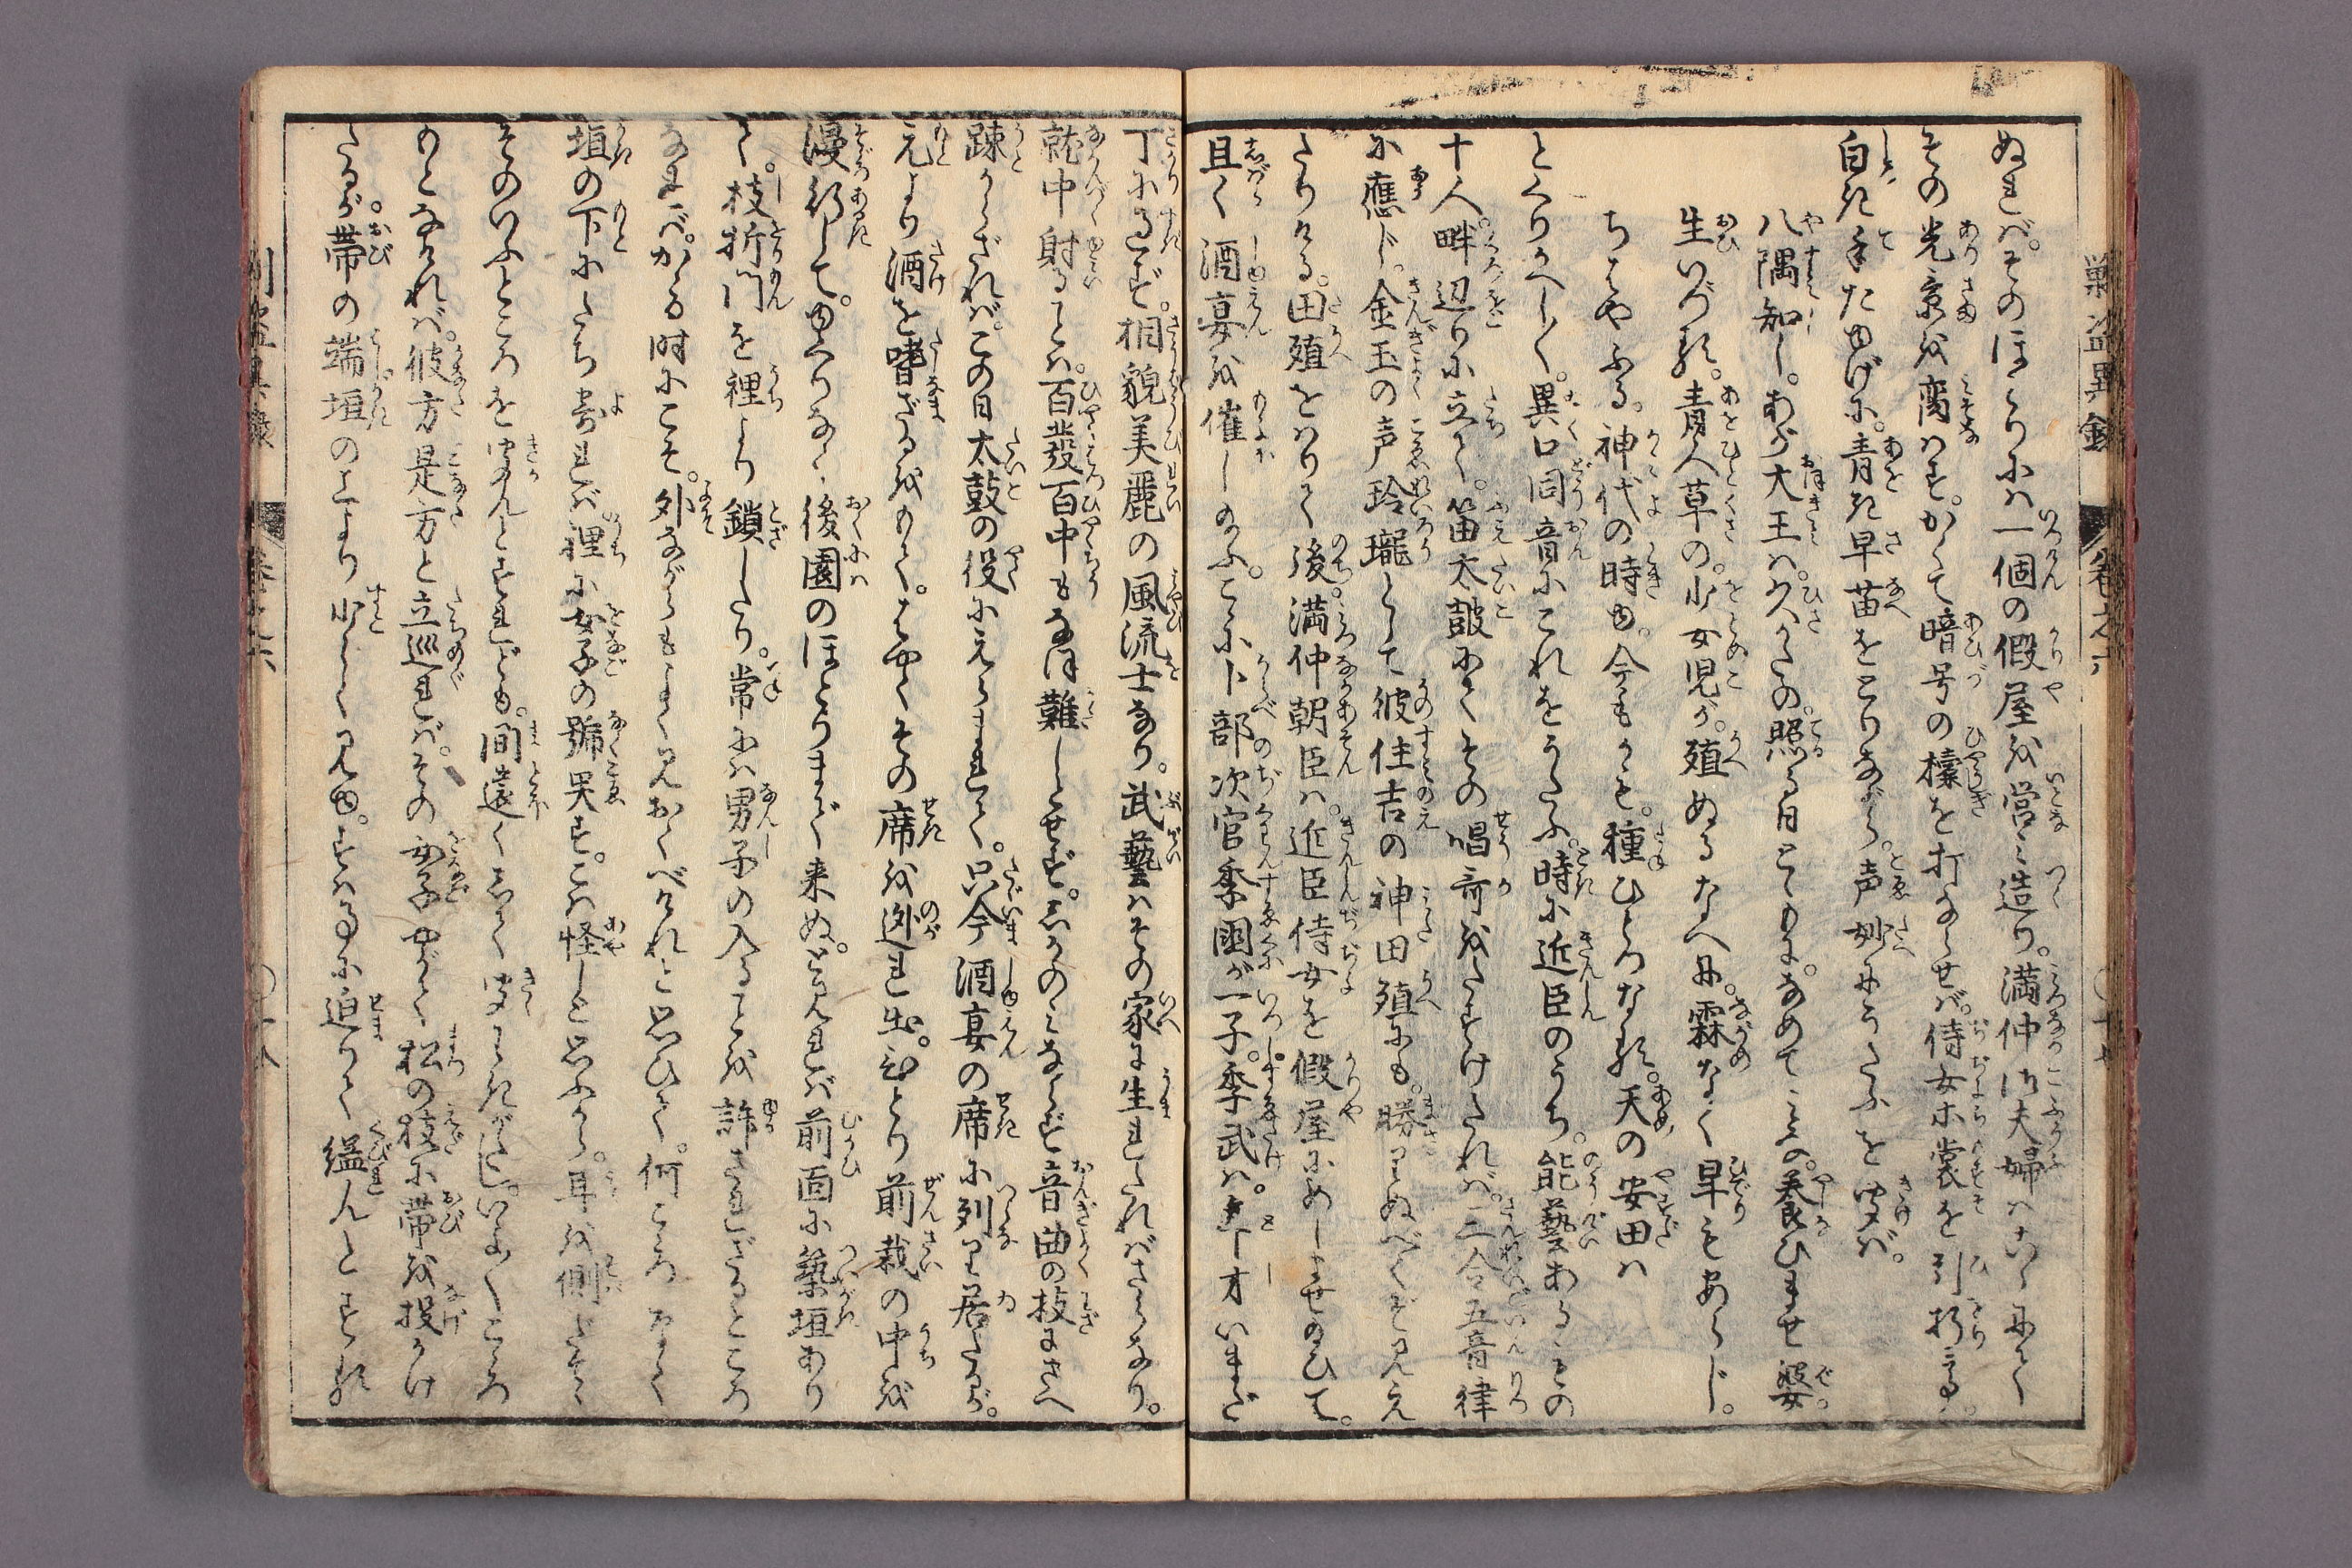 ぬれば。そのほとりには一個の假屋を営々造り。満仲御夫婦はこゝにて
その光景を臠はす。かくて暗号の檬を打ならせば。侍女ホ裳を引折々。
白き手たゆげに。青き早苗をとりながら。声妙にうたふを聞ば。
八隅知し。わが大王は。久かたの。照る日とゝもに。なめてみの。養ひませ婆
生いづる。青人草の。少女児が。殖ぬるなへに。霖なく旱もあらじ。
ちはやふる。神代の時ゆ。今もかも。種ひとつなる。天の安田は
とくりかへし〳〵。異口同音にこれをうたふ。時に近臣のうち。能藝あるもの
十人畔辺りに立て。笛太皷にてその唱哥をたすけたれば。二合五音律
に應じ。金玉の声玲瓏として彼住吉の神田殖にも。勝りぬべくぞ見え
たりける。田殖をはりて後。満仲朝臣は。近臣侍女を假屋にめしよせ給ひて。
且く酒宴を催し給ふ。こゝに卜部次官季国が一子。季武は。年才いまだ
丁に過ず。相貌美麗の風流士なり。武藝はその家に生れたればさらなり。
就中射ることは。百發百中もなほ難しとせず。しかのみならず音曲の技にさへ
踈からざれば。この日太鼓の役にえらまれて。只今酒宴の席に列り居たるが。
元より酒を嗜ざるをもて。はやくその席を迯れ出。ひとり前栽の中を
漫行して。ゆくりなく後園のほとりまで来ぬ。と見れば前面に築垣あり
て。枝折門を裡より鎖したり。常には男子の入ることを許されざるところ
なれば。かゝる時にこそ。外ながらもよく見おくべけれと思ひて。何こゝろなく
垣の下にたち寄れば裡に女子の號哭す。こは怪しと思ふから。耳を側だてゝ
そのいふところを聞んとすれども。間遠くして聞わきがたし。いよ〳〵こゝろ
もとなければ。彼方是方と立巡れば。その女子やがて松の枝に帯を投かけ
たるが。帯の端垣の上より少しく見ゆ。すは事に迫りて縊んとする
巻之六